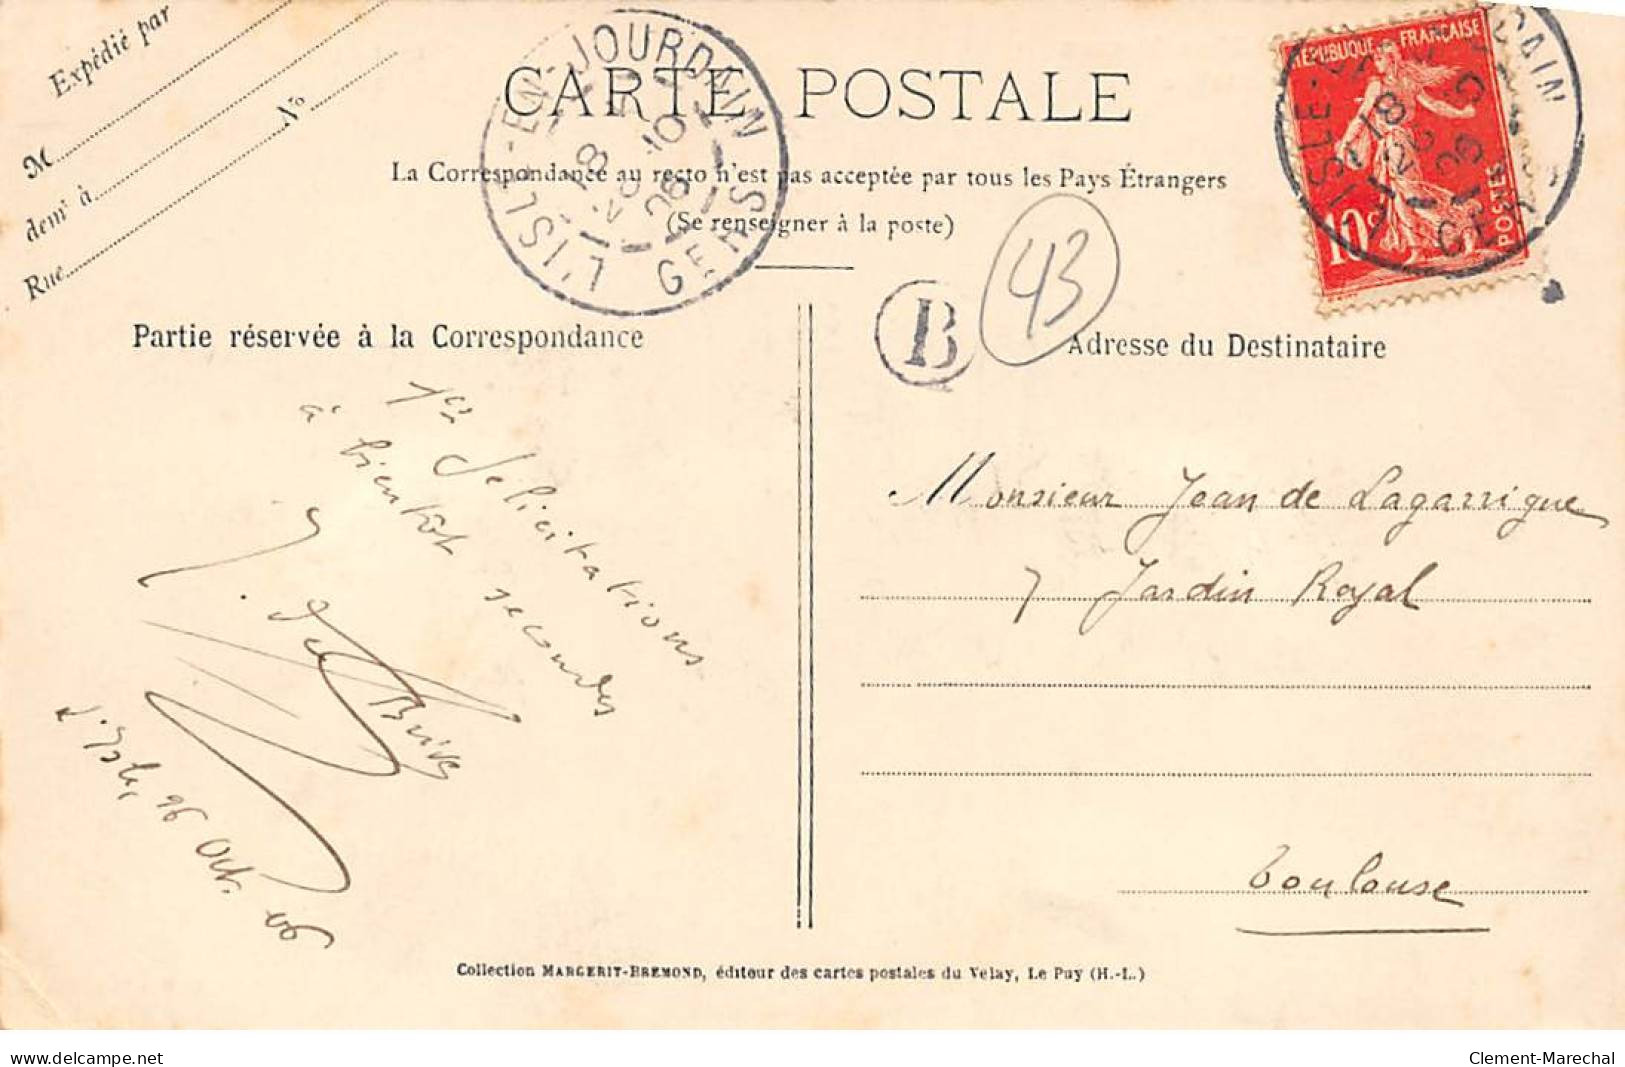 Expédié par
M
demt à
No
Rue
CARTE POSTALE
La Correspondance au recto n'est pas acceptée par tous les Pays Étrangers
(Se renseigner à la poste)
L'ISLE-EN-JOURDAIN
18
26
10
06
GERS
RÉPUBLIQUE FRANÇAISE
10c
POSTES
L'ISLE-
RDAIN
18
26
06
GERS
B
43
Partie réservée à la Correspondance
1res félicitations
à bientôt secondes
L'Isle, 26 Oct. 06
Adresse du Destinataire
Monsieur Jean de Lagarrigue
7 Jardin Royal
Toulouse
Collection MARGERIT-BREMOND, éditeur des cartes postales du Velay, Le Puy (H.-L.)
www.delcampe.net
Clement-Marechal